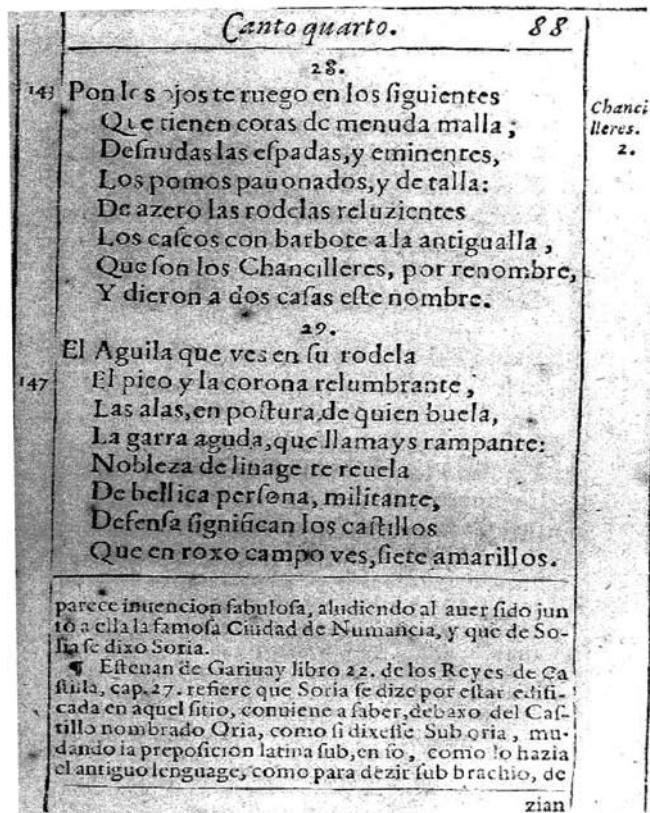 Canto quarto. 88
28.
143 Pon los ojos te ruego en los ſiguientes
Que tienen cotas de menuda malla;
Deſnudas las eſpadas, y eminentes,
Los pomos pauonados, y de talla:
De azero las rodelas reluzientes
Los caſcos con barbote a la antigualla,
Que ſon los Chancilleres, por renombre,
Y dieron a dos caſas eſte nombre.
Chanci
lleres.
2.
29.
El Aguila que ves en ſu rodela
147 El pico y la corona relumbrante,
Las alas, en poſtura de quien buela,
La garra aguda, que llamays rampante:
Nobleza de linage te reuela
De bellica perſona, militante,
Defenſa ſignifican los caſtillos
Que en roxo campo ves, ſiete amarillos.
parece inuencion fabuloſa, aludiendo al auer ſido jun
to a ella la famoſa Ciudad de Numancia, y que de So-
ria ſe dixo Soria.
¶ Eſteuan de Gariuay libro 22. de los Reyes de Ca
ſtilla, cap. 27. refiere que Soria ſe dize por eſtar edifi-
cada en aquel ſitio, conuiene a ſaber, debaxo del Caſ-
tillo nombrado Oria, como ſi dixeſſe Sub oria, mu-
dando la prepoſicion latina ſub, en ſo, como lo hazia
el antiguo lenguage, como para dezir ſub brachio, de
zian